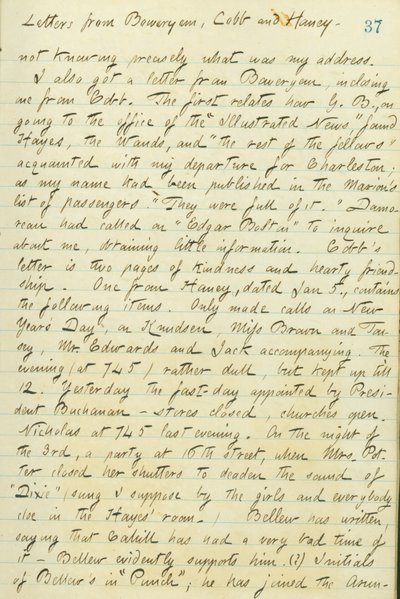 Letters from Boweryem, Cobb and Haney.
37
not knowing precisely what was my address.
I also got a letter from Boweryem, inclosing
one from Cobb. The first relates how G. B., on
going to the office of the "Illustrated News" found
Hayes, the Wands, and "the rest of the fellows"
acquainted with my departure for Charleston;
as my name had been published in the Marion's
list of passengers. "They were full of it." Damo-
reau had called on "Edgar Bolton" to inquire
about me, obtaining little information. Cobb's
letter is two pages of kindness and hearty friend-
ship. One from Haney, dated Jan 5., contains
the following items. Only made calls on New
Years Day, on Knudsen, Miss Brown and Tou-
sey, Mr. Edwards and Jack accompanying. The
evening (at 745) rather dull, but kept up till
12. Yesterday the fast-day appointed by Presi-
dent Buchanan – stores closed, churches open.
Nicholas at 745 last evening. On the night of
the 3rd, a party at 16th street, when Mrs. Pot-
ter closed her shutters to deaden the sound of
"Dixie" (sung I suppose by the girls and everybody
else in the Hayes' room.) Bellew has written,
saying that Cahill has had a very bad time of
it – Bellew evidently supports him. (?) Initials
of Bellew's in "Punch"; he has joined the Arun-